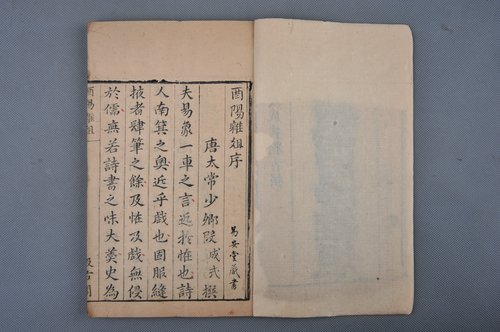 酉陽雜俎序
易安堂藏書
唐太常少卿段成式撰
夫易象一車之言近於恠也詩
人南箕之奥近乎戲也固服縫
掖者肆筆之餘及恠及戲無侵
於儒無若詩書之味大羹史為
酉陽雜俎
汲古閣